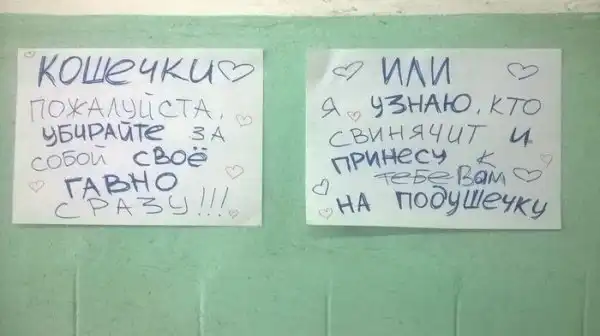 КОШЕЧКИ
ПОЖАЛУЙСТА,
УБИРАЙТЕ ЗА
СОБОЙ СВОЁ
ГАВНО
СРАЗУ!!!
ИЛИ
Я УЗНАЮ, КТО
СВИНЯЧИТ И
ПРИНЕСУ К
ТЕБЕ ВАМ
НА ПОДУШЕЧКУ